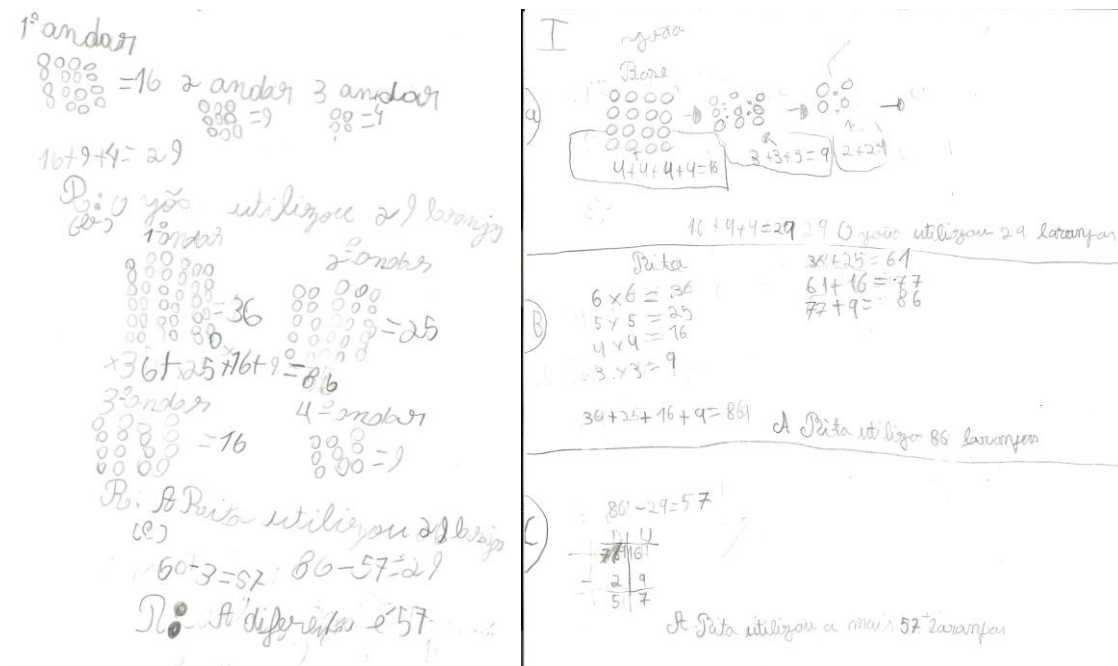 1º andar
=16 2 andar 3 andar
=9 =4
16+9+4=29
R: O joão utilizou 29 laranjas
1º andar
2º andar
=36
=25
36+25+16+9=86
3º andar 4º andar
=16
=9
R: A Rita utilizou 29 laranjas
(C)
60-3=57 86-57=29
R: A diferença é 57
I
joão
Base
a)
4+4+4+4=16 3+3+3=9 2+2=4
16+9+4=29 29 O joão utilizou 29 laranjas
Rita
36+25=61
6×6=36
61+16=77
5×5=25
77+9=86
B)
4×4=16
3×3=9
36+25+16+9=86
A Rita utilizo 86 laranjas
C)
86-29=57
D U
7 16
- 2 9
5 7
A Rita utilizou a mais 57 laranjas